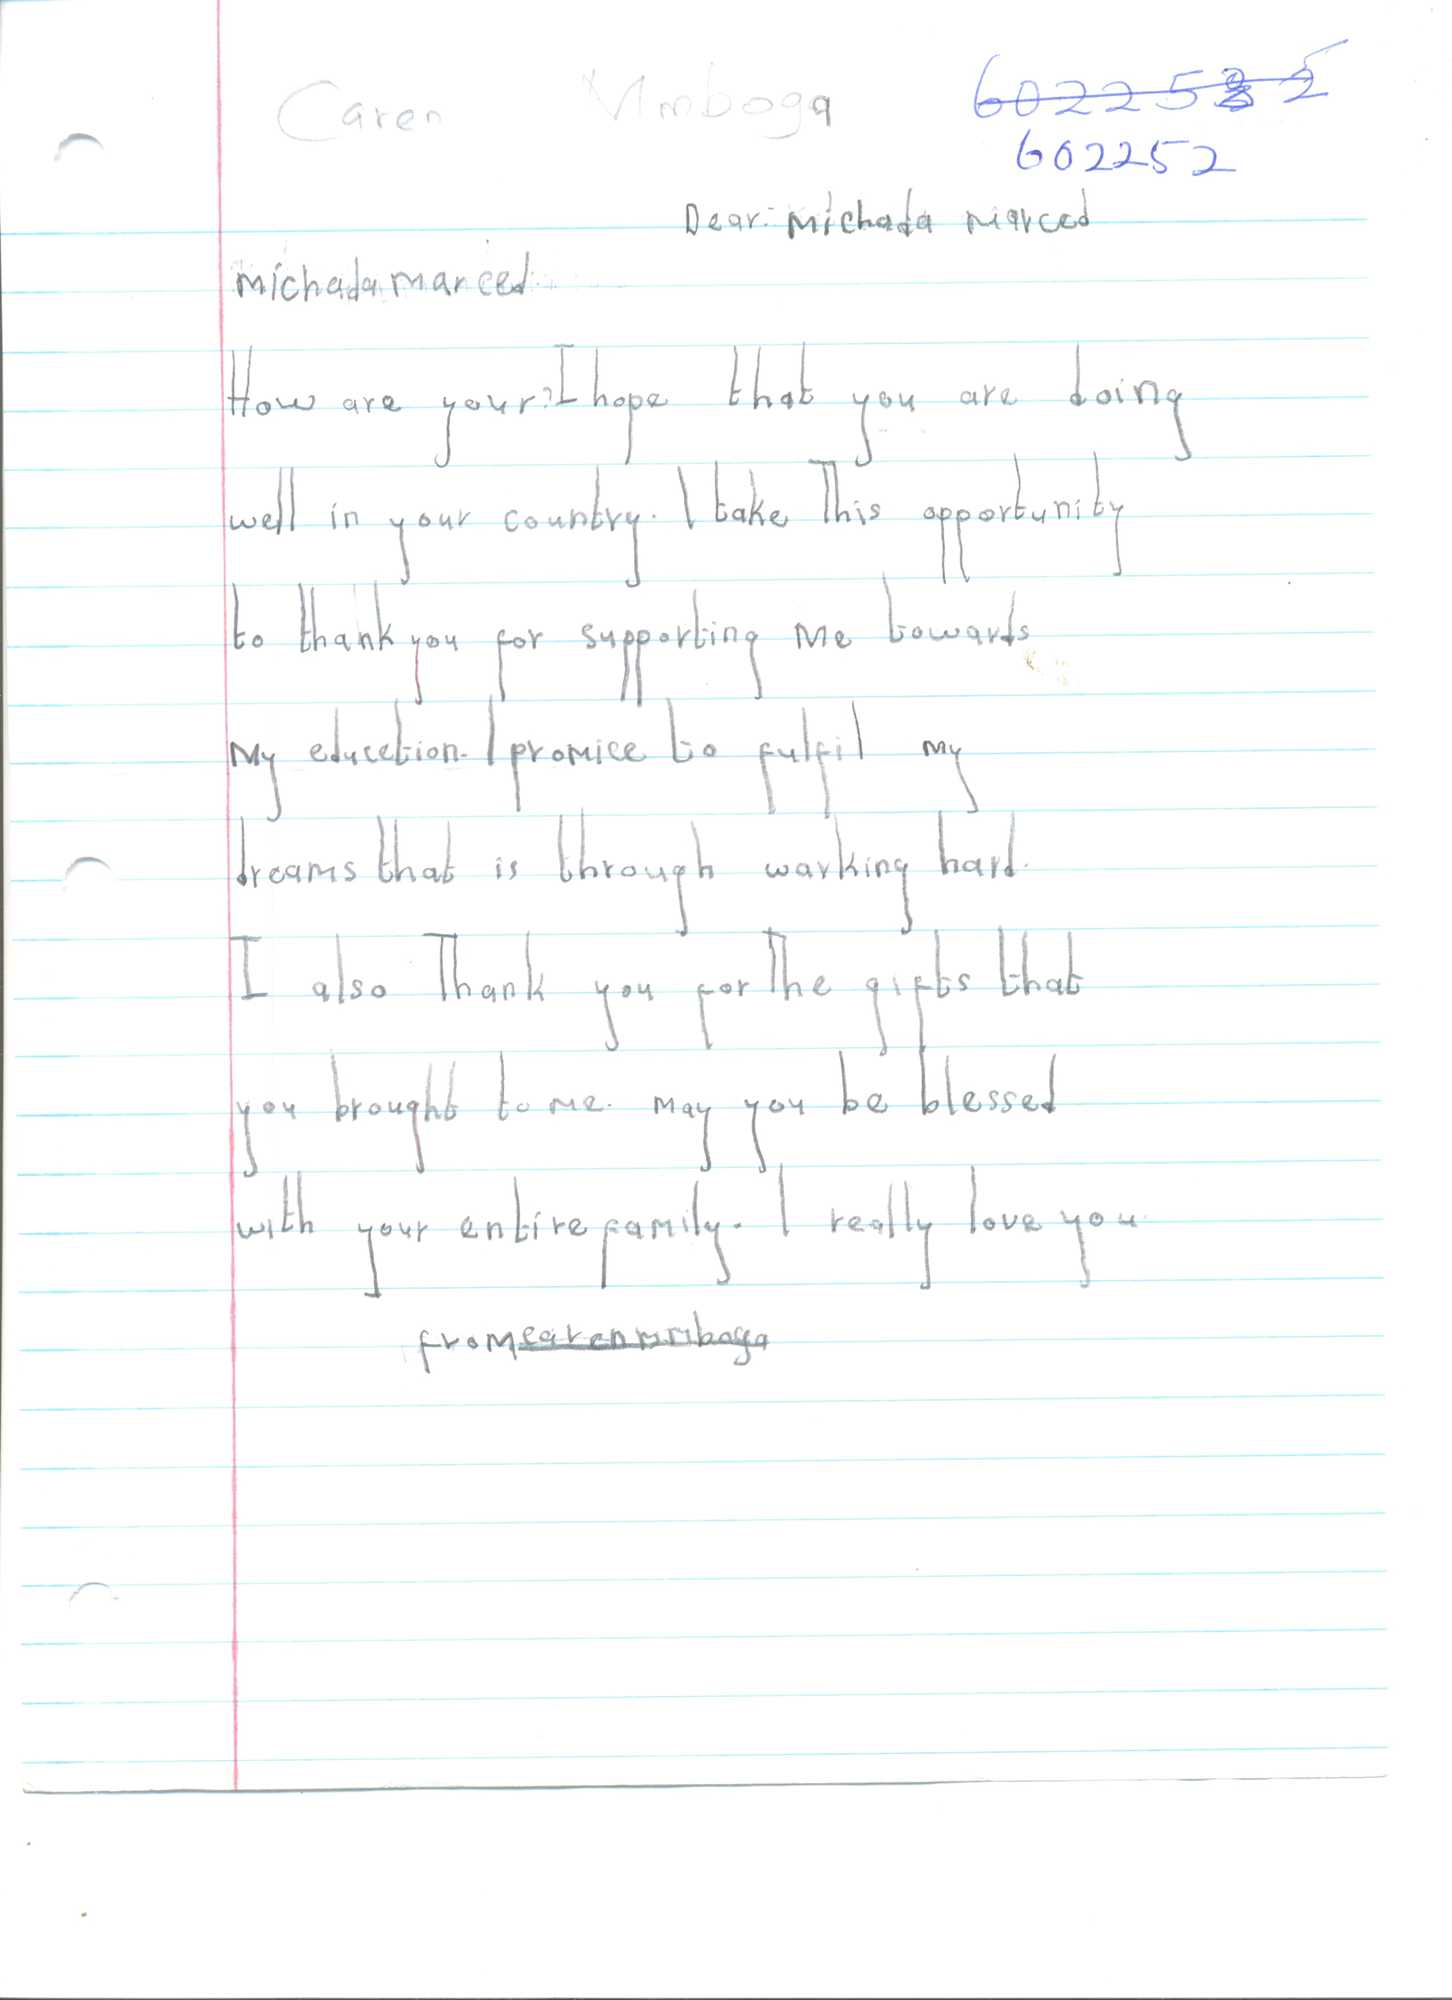 Caren Mmboga
602252
Dear: Michada Marced
Michada Marced
How are your? I hope that you are doing
well in your country. I take This opportunity
to thank you for supporting Me towards
My education. I promice to fulfil my
dreams that is through warking hard.
I also Thank you for The gifts that
you brought to me. May you be blessed
with your entire family. I really love you
from caren mmboga